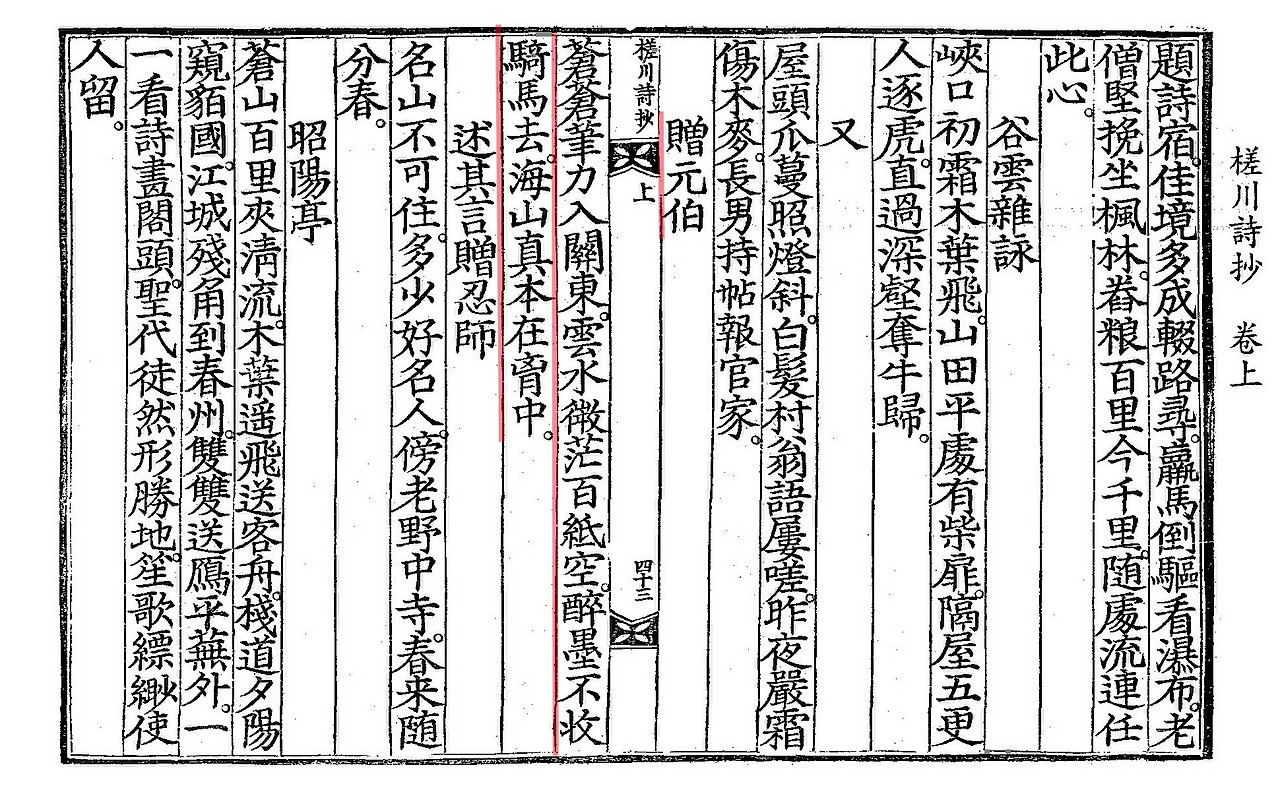 槎川詩抄 卷上
題詩宿。佳境多成輟路尋。羸馬倒驅看瀑布。老
僧堅挽坐楓林。舂粮百里今千里。随處流連任
此心。
谷雲雜詠
峽口初霜木葉飛。山田平處有柴扉。隔屋五更
人逐虎。直過深壑奪牛歸。
又
屋頭瓜蔓照燈斜。白髮村翁語屢嗟。昨夜嚴霜
傷木麥。長男持帖報官家。
贈元伯
槎川詩抄 上 四十三
蒼蒼筆力入關東。雲水微茫百紙空。醉墨不收
騎馬去。海山真本在胷中。
述其言贈忍師
名山不可住。多少好名人。傍老野中寺。春来随
分春。
昭陽亭
蒼山百里夾淸流。木葉遥飛送客舟。棧道夕陽
窺貊國。江城殘角到春州。雙雙送鴈平蕪外。一
一看詩畫閣頭。聖代徒然形勝地。笙歌縹緲使
人留。